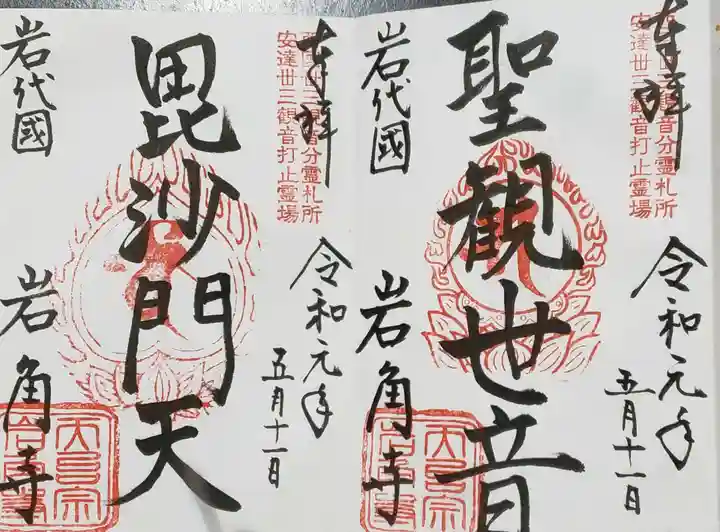 奉拝
西国卅三観音分霊札所
安達卅三観音打止霊場
令和元年
五月十一日
聖観世音
岩代國
岩角寺
奉拝
西国卅三観音分霊札所
安達卅三観音打止霊場
令和元年
五月十一日
毘沙門天
岩代國
岩角寺